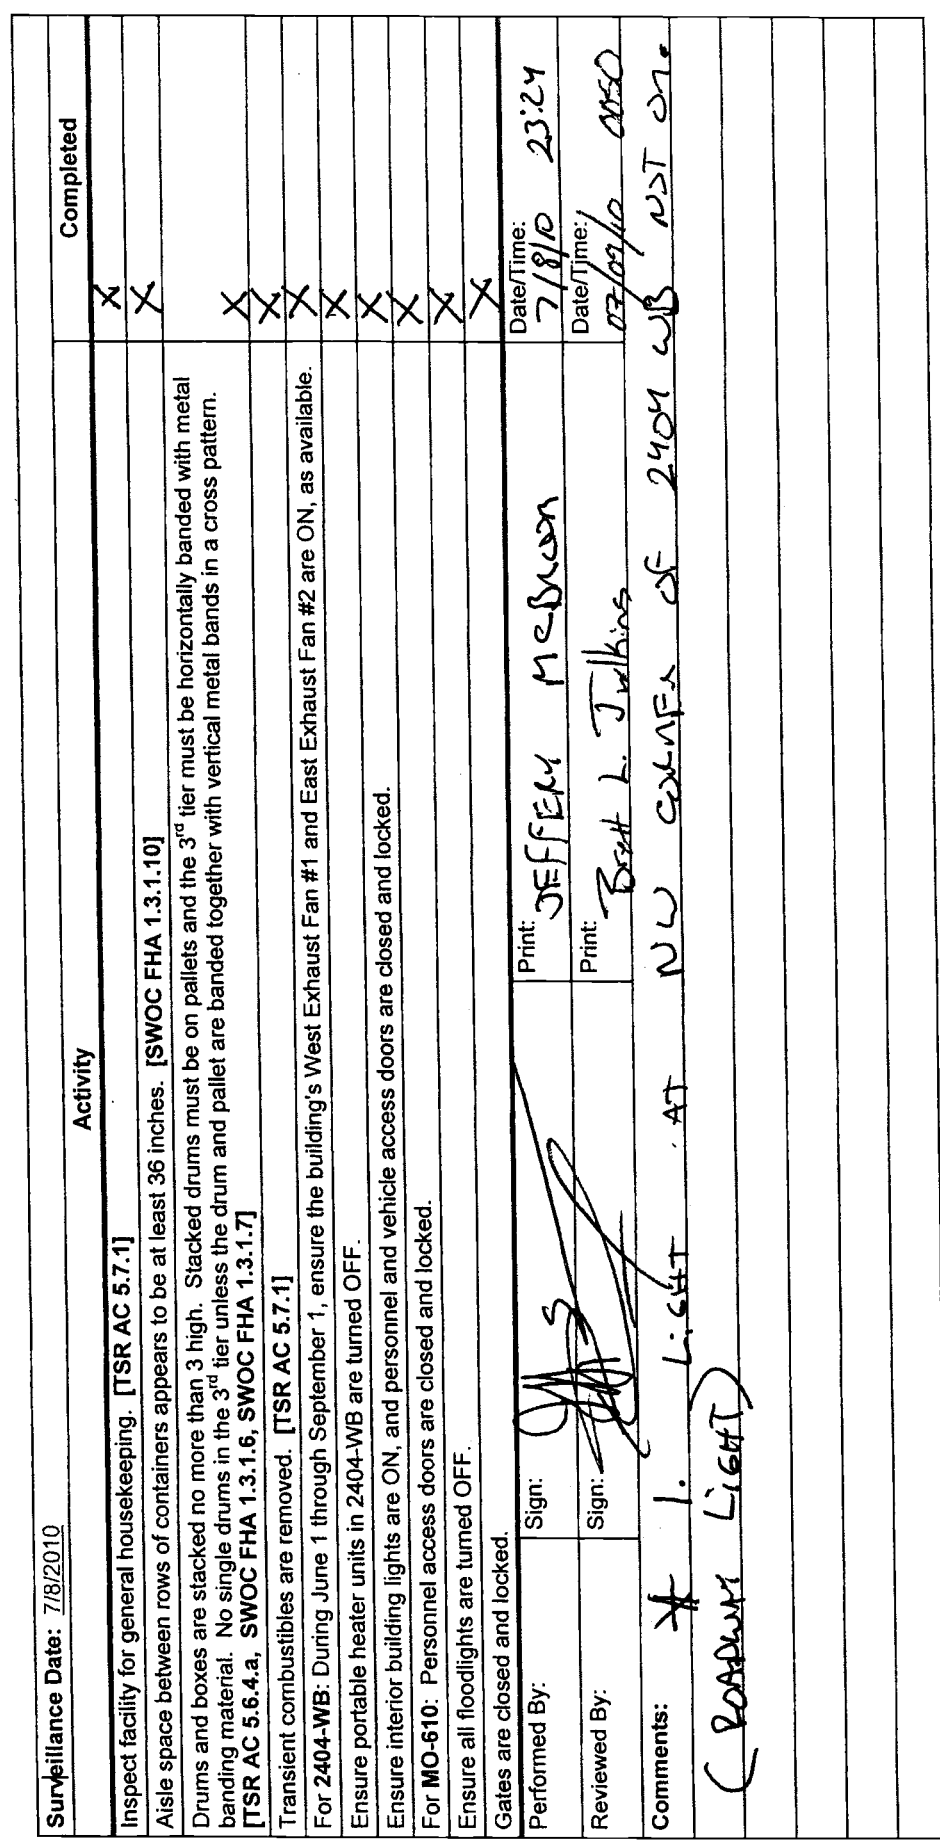 Surveillance Date: 7/8/2010
Activity Completed
Inspect facility for general housekeeping. [TSR AC 5.7.1] X
Aisle space between rows of containers appears to be at least 36 inches. [SWOC FHA 1.3.1.10] X
Drums and boxes are stacked no more than 3 high. Stacked drums must be on pallets and the 3rd tier must be horizontally banded with metal
banding material. No single drums in the 3rd tier unless the drum and pallet are banded together with vertical metal bands in a cross pattern.
[TSR AC 5.6.4.a, SWOC FHA 1.3.1.6, SWOC FHA 1.3.1.7] X
Transient combustibles are removed. [TSR AC 5.7.1] X
For 2404-WB: During June 1 through September 1, ensure the building's West Exhaust Fan #1 and East Exhaust Fan #2 are ON, as available. X
Ensure portable heater units in 2404-WB are turned OFF. X
Ensure interior building lights are ON, and personnel and vehicle access doors are closed and locked. X
For MO-610: Personnel access doors are closed and locked. X
Ensure all floodlights are turned OFF. X
Gates are closed and locked. X
Performed By: Sign: Print: JEFFERY McBROOM Date/Time: 7/8/10 23:24
Reviewed By: Sign: Print: Brett L. Date/Time: 07/09/10 0050
Comments: * 1. LIGHT AT NW CORNER OF 2404 WB NOT ON.
(ROADWAY LIGHT)